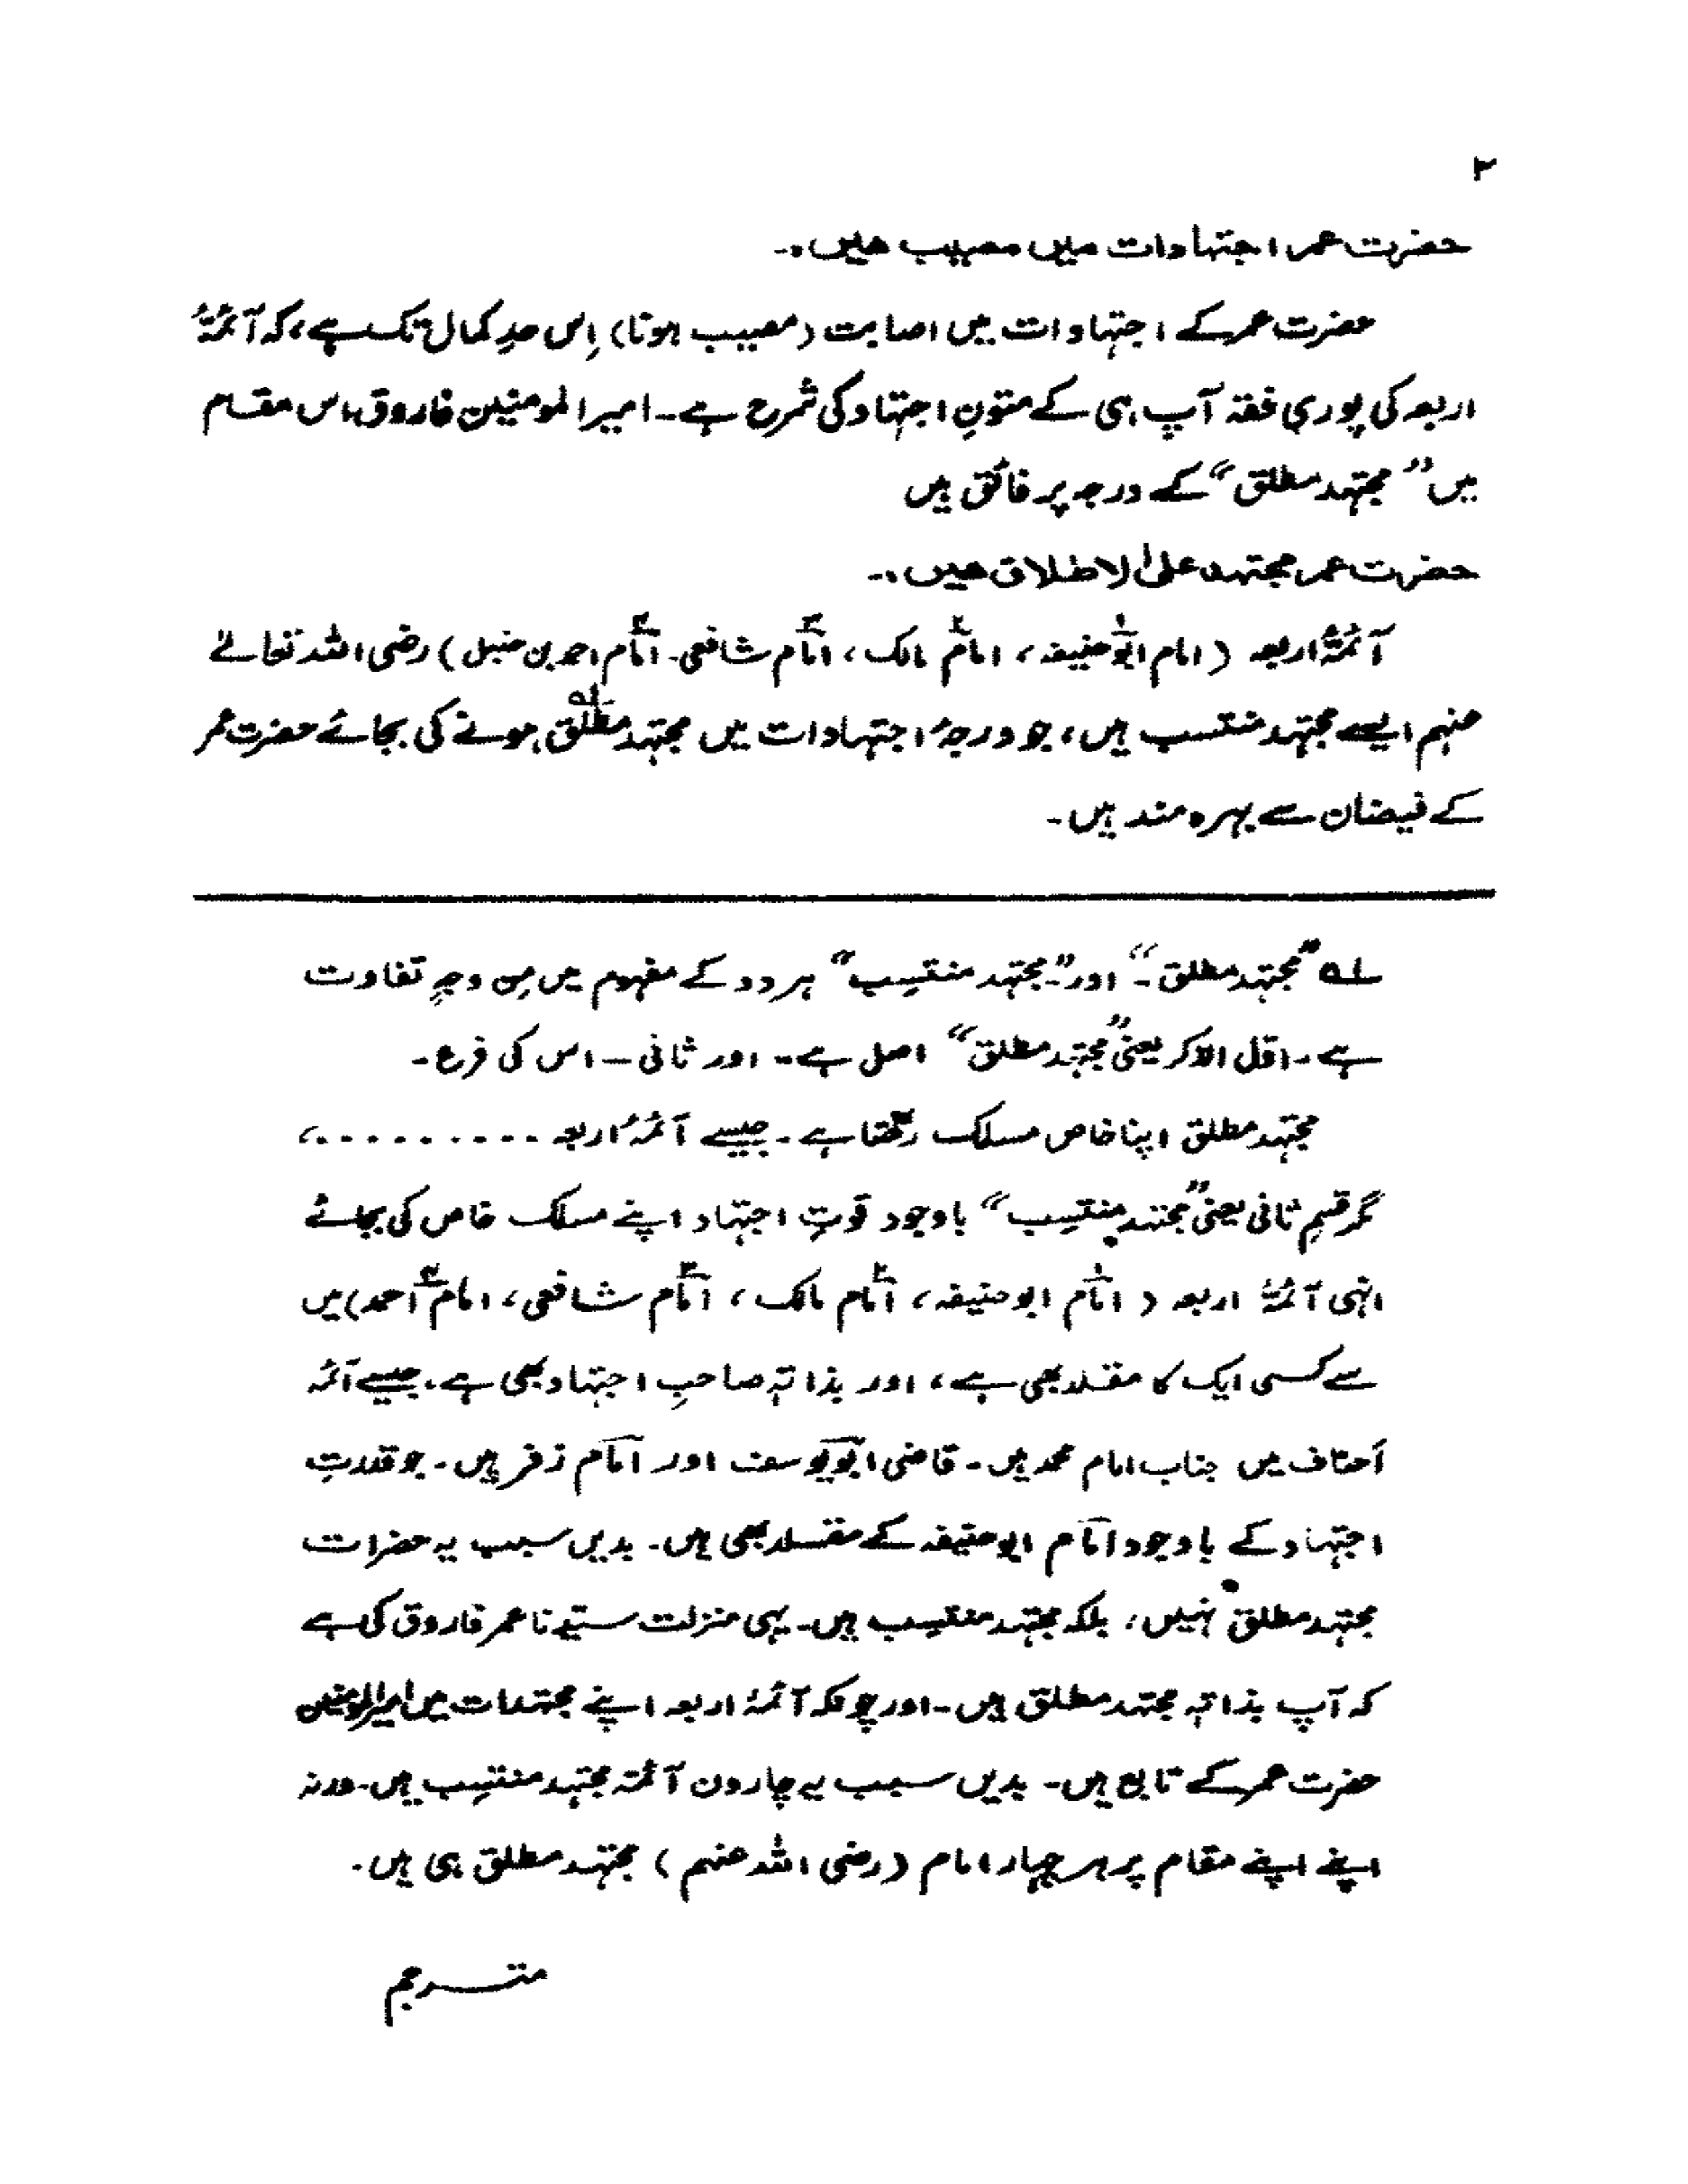 ۲
حضرت عمر اجتہادات میں مصیب ھیں۔
حضرت عمر کے اجتہادات میں اصابت (مصیب ہونا) اِس حدِ کمال تک ہے، کہ آئمۂ
اربعہ کی پوری فقہ آپ ہی کے متونِ اجتہاد کی شرح ہے۔ امیر المومنین فاروق، اس مقام
میں ”مجتہد مطلق“ کے درجہ پر فائق ہیں
حضرت عمر مجتہد علیٰ الاطلاق ھیں۔
آئمۂ اربعہ (امام ابو حنیفہ، امام مالک، امام شافعی۔ امام احمد بن حنبل) رضی اللہ تعالےٰ
عنہم ایسے مجتہد منتسب ہیں، جو درجۂ اجتہادات میں مجتہد مطلق ؎۱ ہونے کی بجائے حضرت عمر
کے فیضان سے بہرہ مند ہیں۔
؎۱ ”مجتہد مطلق۔“ اور ”مجتہد منتسِب“ ہر دو کے مفہوم میں مِن وجہٍ تفاوت
ہے۔ اوّل الذکر یعنی ”مجتہد مطلق“ اصل ہے۔ اور ثانی ۔ اس کی فرع۔
مجتہد مطلق اپنا خاص مسلک رکھتا ہے۔ جیسے آئمۂ اربعہ ..........،
مگر قسمِ ثانی یعنی ”مجتہد منتسِب“ باوجود قوتِ اجتہاد اپنے مسلک خاص کی بجائے
انہی آئمۂ اربعہ (امام ابو حنیفہ، امام مالک، امام شافعی، امام احمد) میں
سے کسی ایک کا مقلد بھی ہے، اور بذاتہٖ صاحبِ اجتہاد بھی ہے۔ جیسے آئمہ
اَحناف میں جناب امام محمد ہیں۔ قاضی ابو یوسف اور امام زفر ہیں۔ جو قدرتِ
اجتہاد کے باوجود امام ابو حنیفہ کے مقلد بھی ہیں۔ بدیں سبب یہ حضرات
مجتہد مطلق نہیں، بلکہ مجتہد منتسِب ہیں۔ یہی منزلت سیّدنا عمر فاروق کی ہے
کہ آپ بذاتہٖ مجتہد مطلق ہیں۔ اور چونکہ آئمۂ اربعہ اپنے مجتہدات میں امیر المومنین
حضرت عمر کے تابع ہیں۔ بدیں سبب یہ چاروں آئمہ مجتہد منتسِب ہیں۔ ورنہ
اپنے اپنے مقام پر ہر چہار امام (رضی اللہ عنہم) مجتہد مطلق ہی ہیں۔
مترجم